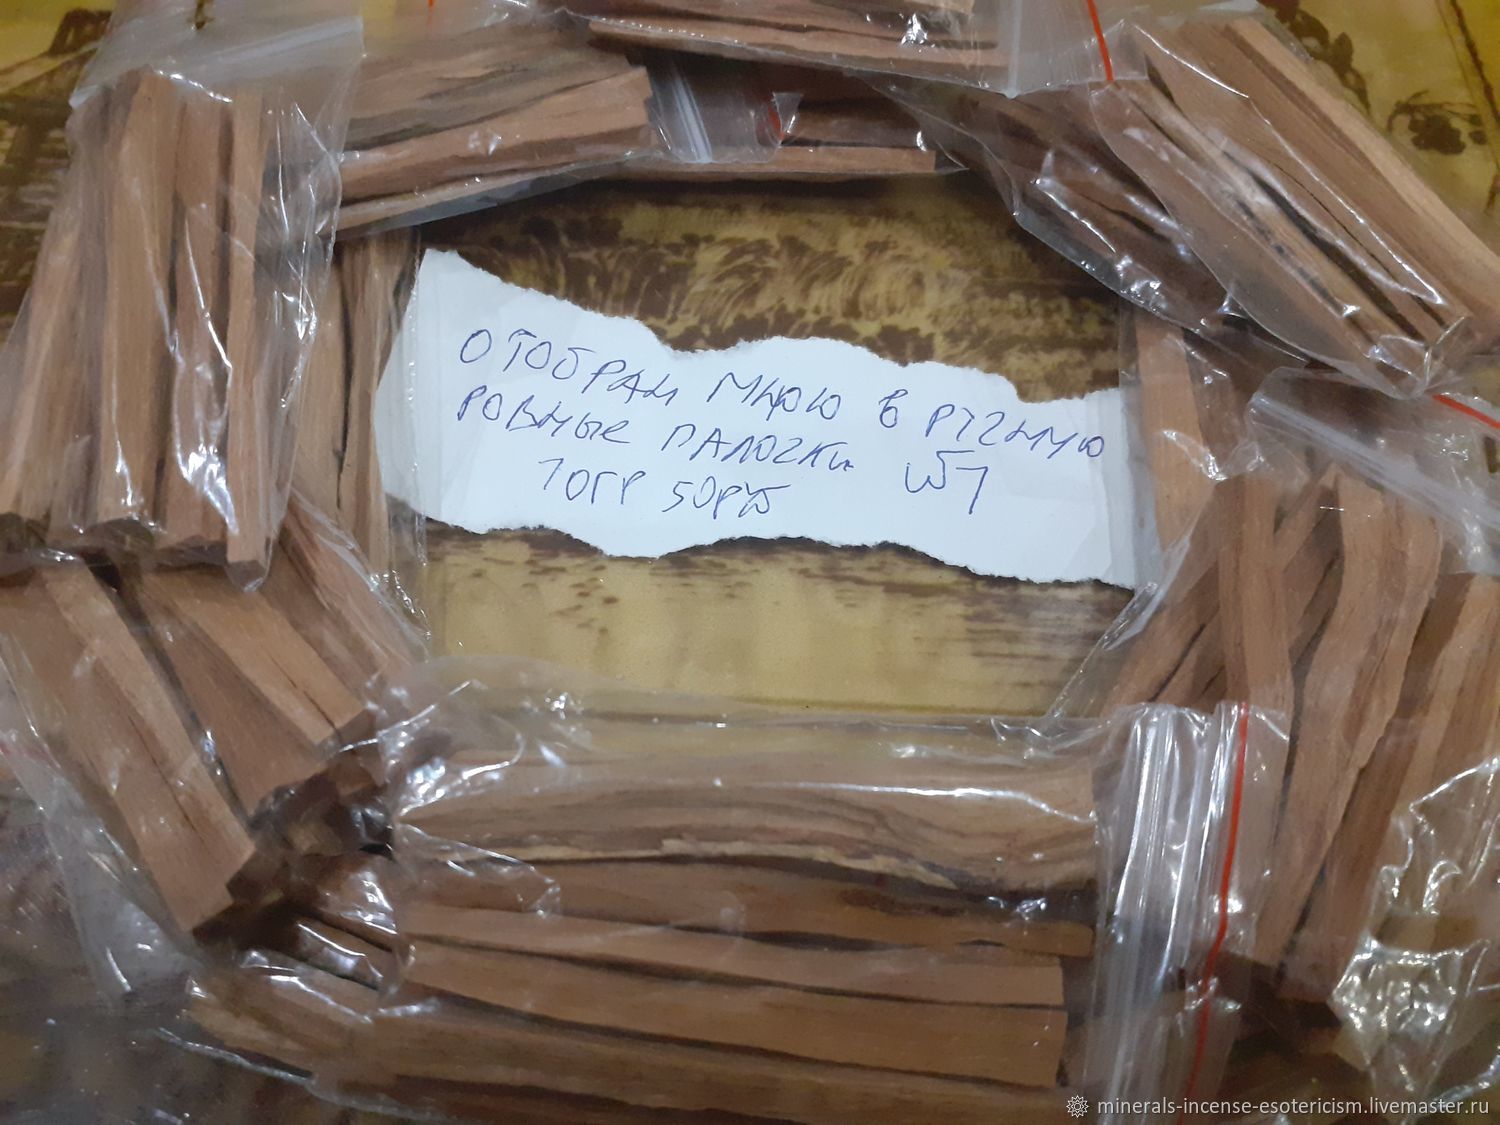 ОТОБРАН МНОЮ В РУЧНУЮ
РОВНЫЕ ПАЛОЧКИ
10ГР 50РУБ
minerals-incense-esotericism.livemaster.ru